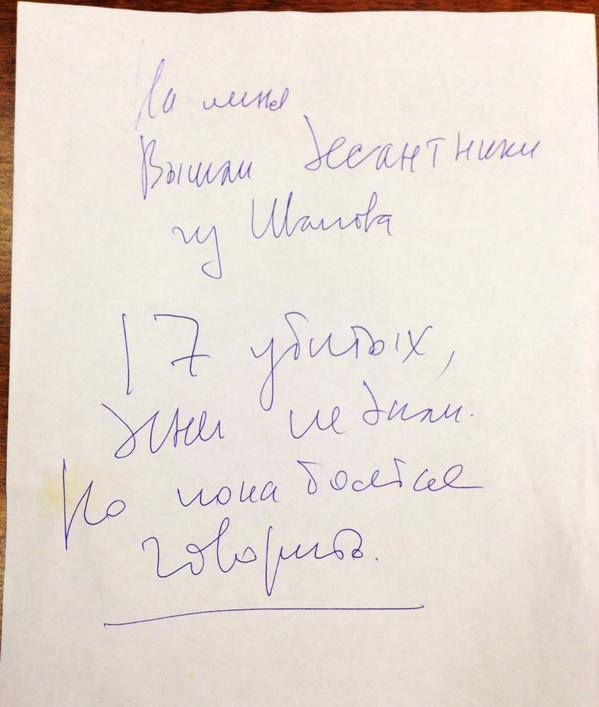 На меня
Вышли десантники
из Иванова
17 убитых,
не дали.
Но пока боятся
говорить.